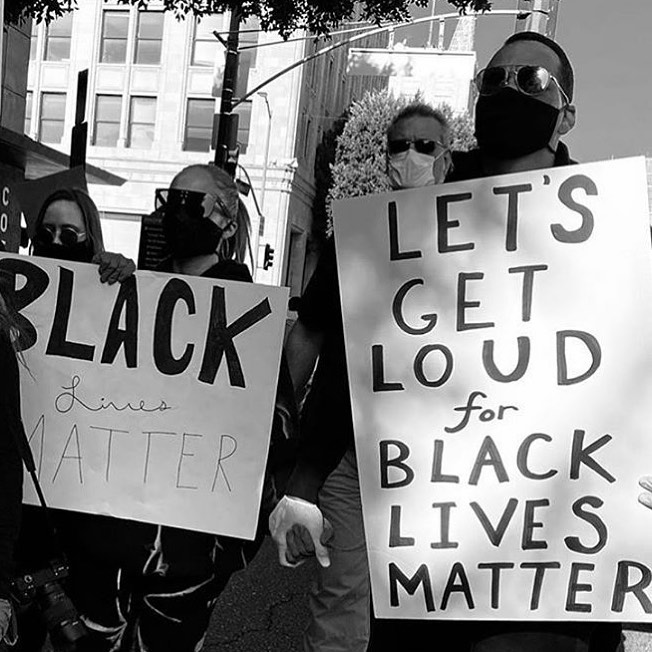 BLACK
Lives
MATTER
LET'S
GET
LOUD
for
BLACK
LIVES
MATTER